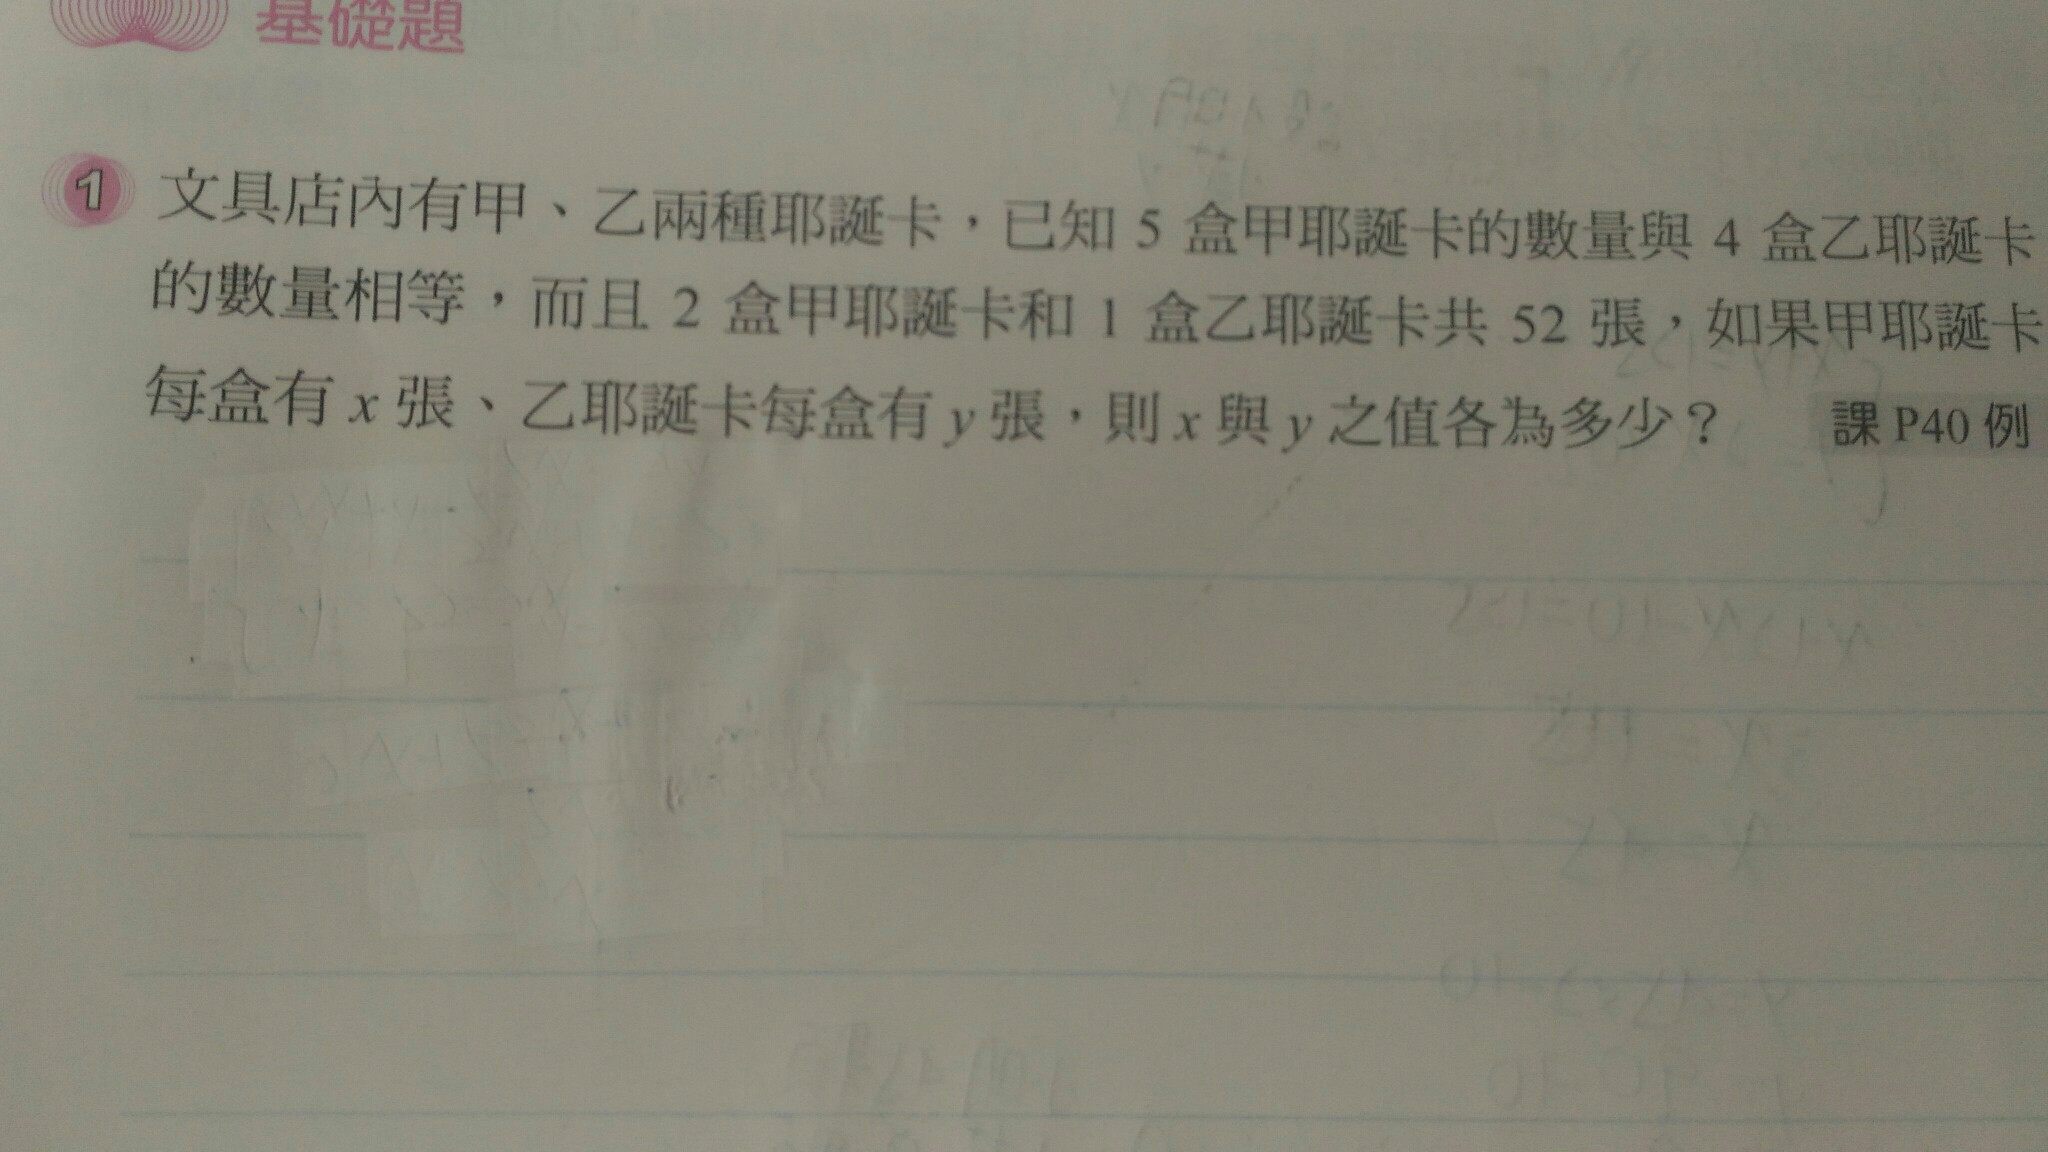 基礎題
1 文具店內有甲、乙兩種耶誕卡，已知 5 盒甲耶誕卡的數量與 4 盒乙耶誕卡
的數量相等，而且 2 盒甲耶誕卡和 1 盒乙耶誕卡共 52 張，如果甲耶誕卡
每盒有 x 張、乙耶誕卡每盒有 y 張，則 x 與 y 之值各為多少？ 課 P40 例